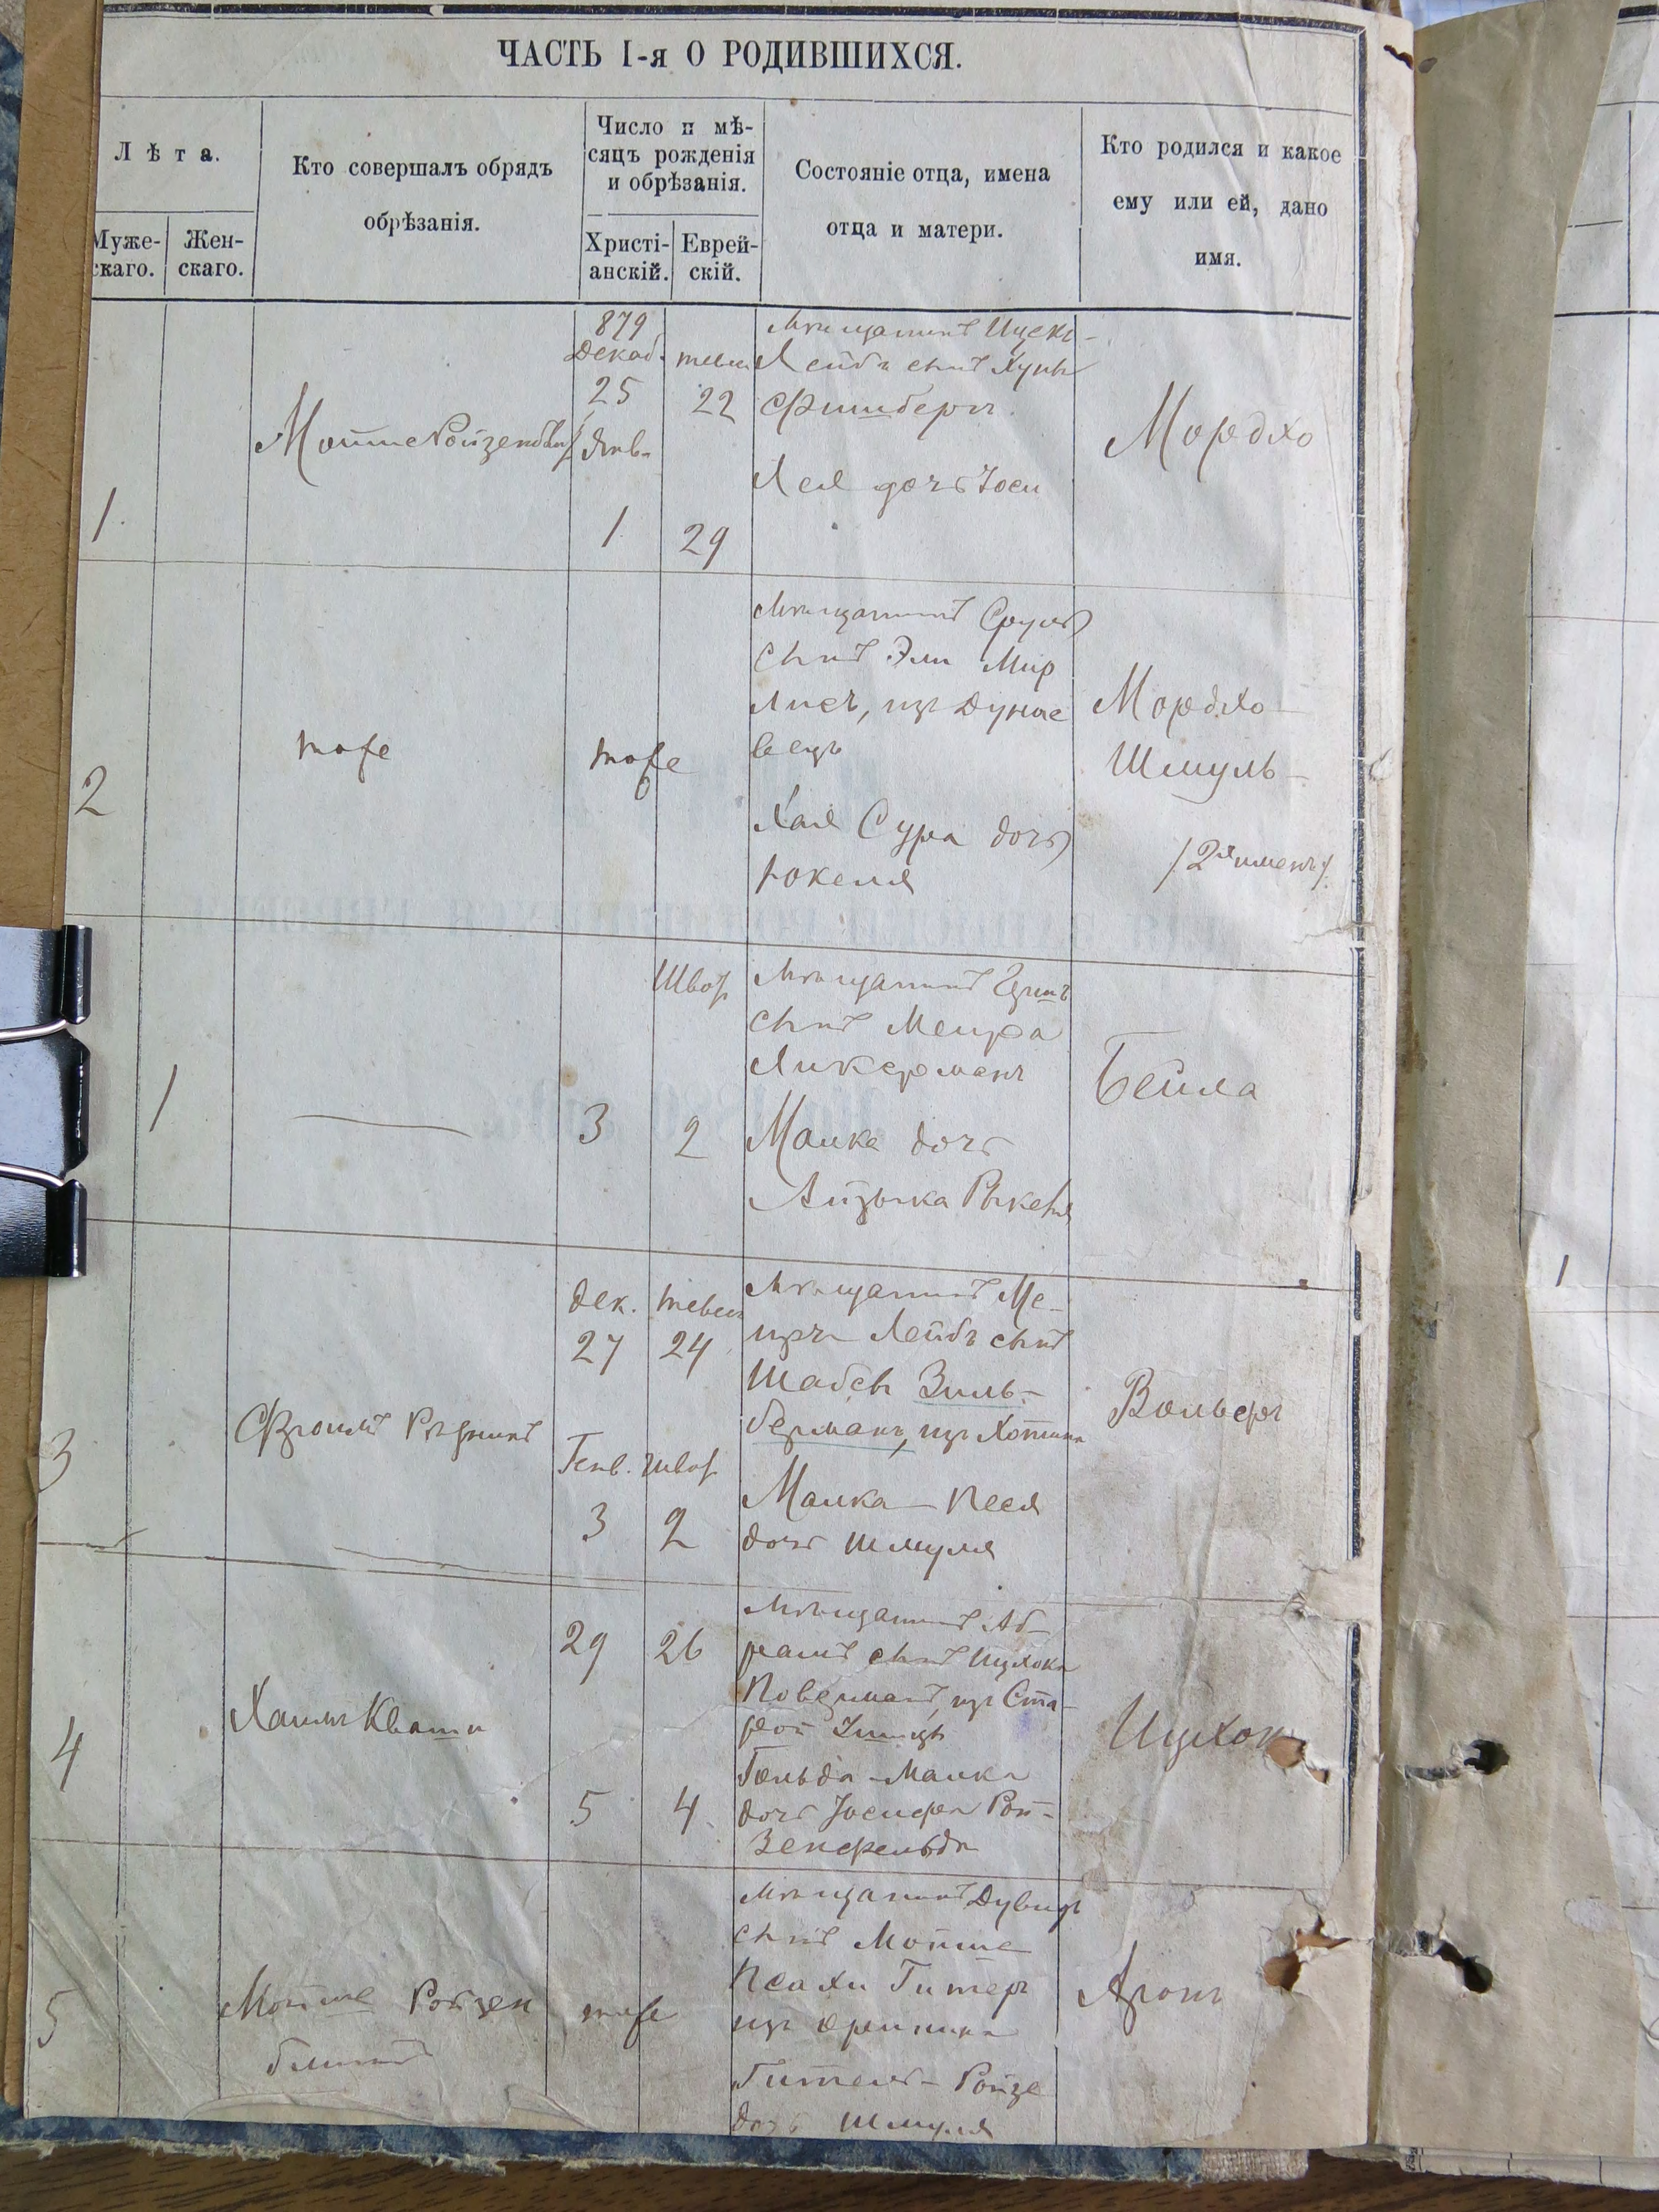 ЧАСТЬ I-я О РОДИВШИХСЯ.
Лѣта.
Муже-
скаго.
Жен-
скаго.
Кто совершалъ обрядъ
обрѣзанія.
Число и мѣ-
сяцъ рожденія
и обрѣзанія.
Христі-
анскій.
Еврей-
скій.
Состояніе отца, имена
отца и матери.
Кто родился и какое
ему или ей, дано
имя.
1
879
Декаб.
25
Янв.
1
22
29
Мѣщанинъ Ицекъ-
Лейбъ сынъ Хуны
Фишберъ
Лея дочь Іоси
Мордхо
2
тоже
тоже
Мѣщанинъ Сруль
сынъ Эли Мир
лисъ, изъ Дунае
вецъ
Хая Сура дочь
Іокеля
Мордхо-
Шмуль-
/2я именъ/.
1
3
Швот
2
Мѣщанинъ
сынъ Меира
Ликерманъ
Малка дочь
Айзыка
Бейла
3
Дек.
27
Генв.
3
Тевес
24
Швот
2
Мѣщанинъ Ме-
иръ Лейбъ сынъ
Шабсы Зиль-
берманъ, изъ Хотина
Малка-Песя
дочь Шмуля
Вольфъ
4
Хаимъ
29
5
26
4
Мѣщанинъ Аб-
рамъ сынъ Ицхока
изъ Ста-
рой Ушицы
Гольда-Малка
дочь Іосифа Рой-
зенфельда
Ицхок
5
Мойше Ройзен
тоже
Мѣщанинъ Дувидъ
сынъ Мойше
Псахи
изъ
Гитель-Ройзе
дочь Шмуля
Аронъ
1